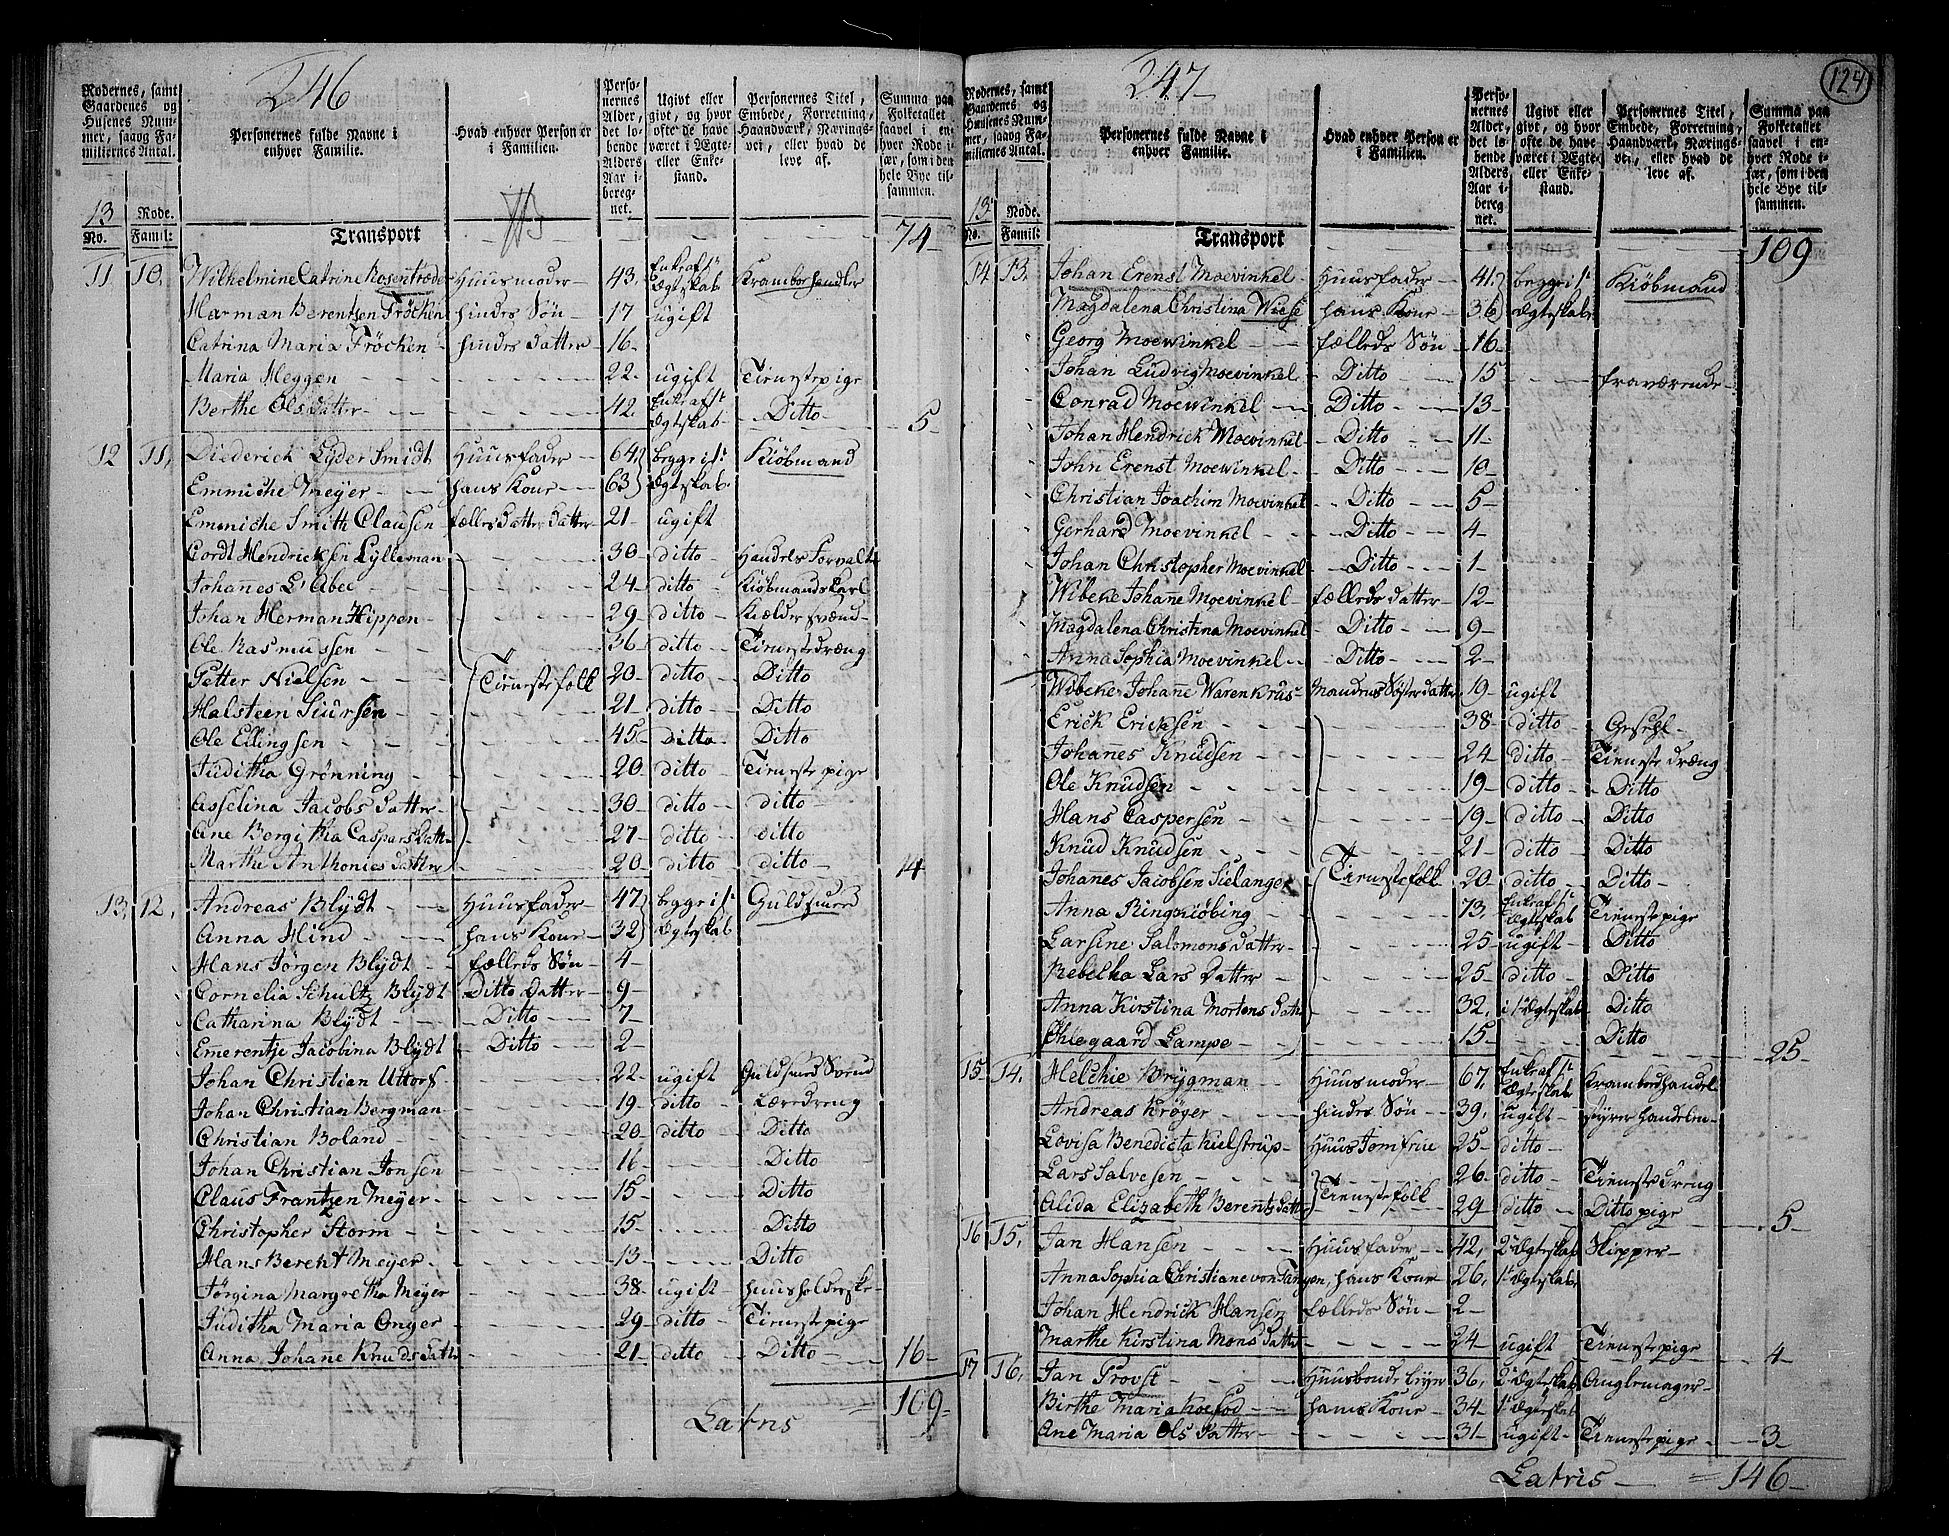 246
Rodernes, samt Gaardenes og Husenes Nummer, saavog Familiernes Antal.
Personernes fulde Navne i enhver Familie.
Hvad enhver Person er i Familien.
Personernes Alder, det lobende Alders Aar iberegnet.
Ugivt eller givt, og hvor ofte de have været i Ægte- eller Enkestand.
Personernes Titel, Embede, Forretning, Haandværk, Næringsvei, eller hvad de leve af.
Summa paa Folketallet saavel i enhver Rode især, som i den hele Bye tilsammen.
13 Rode.
No. Famil: Transport 74
11 10, Wilhelmine Catrine Rosentrode Huusmoder 43. Enke af 1ste Ægteskab Kramboehandler
Harman Berentsen Fröchen hindes Søn 17 ugift
Catrina Maria Fröcken hindes datter 16
Maria Meggen 22. ugift Tienestepige
Berthe Olsdatter 42. Enke af 1ste Ægteskab Ditto 5
12 11, Diederich Lyder Smidt Huusfader 64 begge i 1ste Ægteskab Kiöbmand
Emmiche Meyer hans Kone 63
Emmiche Smith Clausen fælles datter datter 21 ugift
Cordt Hendricksen Lylleman 30 ditto Handels Forvalter
Johannes L'Abee 24 ditto Kiöbmandskarl
Johan Herman Hippen 29 ditto Kieldersvænd
Ole Rasmussen 36 ditto Tienestedræng
Petter Nielsen Tienestefolk 20 ditto Ditto
Halsteen Siursen 21 ditto Ditto
Ole Ellingsen 45 ditto Ditto
Juditha Grönning 20 ditto Tienestepige
Asselina Jacobs datter 30 ditto ditto
Ane Bergitha Caspars datter 27 ditto ditto
Marthe Anthonies datter 20 ditto ditto 14
13, 12, Andreas Blÿdt Huusfader 47 begge i 1ste Ægteskab Guldsmed
Anna Hind hans Kone 32
Hans Jörgen Blÿdt fælleds Søn 4
Cornelia Schultz Blÿdt Ditto Datter 9
Catharina Blÿdt Ditto 7
Emerentje Jacobina Blÿdt Ditto 2
Johan Christian Uttorf 22 ugift Guldsmed Svend
Johan Christian Bergman 19 ditto Læredreng
Christian Boland 20 ditto Ditto
Johan Christian Jonsen 16 Ditto
Claus Frantzen Meÿer 15 Ditto
Christopher Storm 15 Ditto
Hans Berent Meÿer 13 Ditto
Jörgina Margretha Meÿer 38 ugift huusholderske
Juditha Maria Onger 29 ditto Tienestepige
Anna Johanne Knudsdatter 21 ditto Ditto 16
Latris 109
124
247
Rodernes, samt Gaardenes og Husenes Nummer, saavog Familiernes Antal.
Personernes fulde Navne i enhver Familie.
Hvad enhver Person er i Familien.
Personernes Alder, det lobende Alders Aar iberegnet.
Ugivt eller givt, og hvor ofte de have været i Ægte- eller Enkestand.
Personernes Titel, Embede, Forretning, Haandværk, Næringsvei, eller hvad de leve af.
Summa paa Folketallet saavel i enhver Rode især, som i den hele Bye tilsammen.
13 Rode.
No. Famil: Transport 109
14 13. Johan Erenst Moewinkel Huusfader 41 begge i 1ste Ægteskab Kiöbmand
Magdalena Christina Wiese hans Kone 36
Georg Moewinkel fælleds Søn 16
Johan Ludvig Moewinkel Ditto 15 fraværende
Conrad Moewinkel Ditto 13
Johan Hendrick Moewinkel Ditto 11
John Erenst Moewinkel Ditto 10
Christian Joachim Moewinkel Ditto 5
Gerhard Moewinkel Ditto 4
Johan Christopher Moewinkel Ditto 1
Wibeke Johanne Moewinkel fælleds datter 12
Magdalena Christina Moewinkel Ditto 9
Anna Sophia Moewinkel Ditto 2
Wibeke Johanne Warenkrus Mandens Søster datter 19 ugift
Erick Ericksen 38 ditto Gesehl
Johannes Knudsen 24 ditto Tienestedræng
Ole Knudsen 19 ditto Ditto
Hans Caspersen 19 ditto Ditto
Knud Knudsen 21 ditto Ditto
Johanes Jacobsen Sielanger Tienestefolk 20 ditto Ditto
Anna Ringkiöbing 73, Enke af 1ste Ægteskab Tienestepige
Larsine Salomons datter 25 ugift Ditto
Rebekka Lars Datter 25 ditto Ditto
Anna Kirstina Mortens datter 32, i 1ste Ægteskab Ditto
Ohlegaard Lampe 15 Ditto 25
15 14, Melchie Brÿgman Huusmoder 67, Enke af 1ste Ægteskab Kramboehandel
Andreas Kröger hindes Søn 39, ugift styrer handelen
Lovisa Benedicta Kielstrup Huus Jomfrue 25 ditto
Lars Salvesen Tienestefolk 26 ditto Tienestedreng
Alida Elizabeth Berents datter 29 ditto Ditto pige 5
16 15, Jan Hansen Huusfader 42, 2det Ægteskab Skipper
Anna Sophia Christiane von Tangen, hans Kone 26, 1ste Ægteskab
Johan Hendrick Hansen fælleds Søn 2
Marthe Kirstina Mons datter 24 ugift Tienestepige 4
17 16, Jan Provst Huusbonde 36, 2det Ægteskab Anglemager
Birthe Maria Koefod hans Kone 34 1ste Ægteskab
Ane Maria Ols datter 31 ugift Tienestepige 3
Latris 146